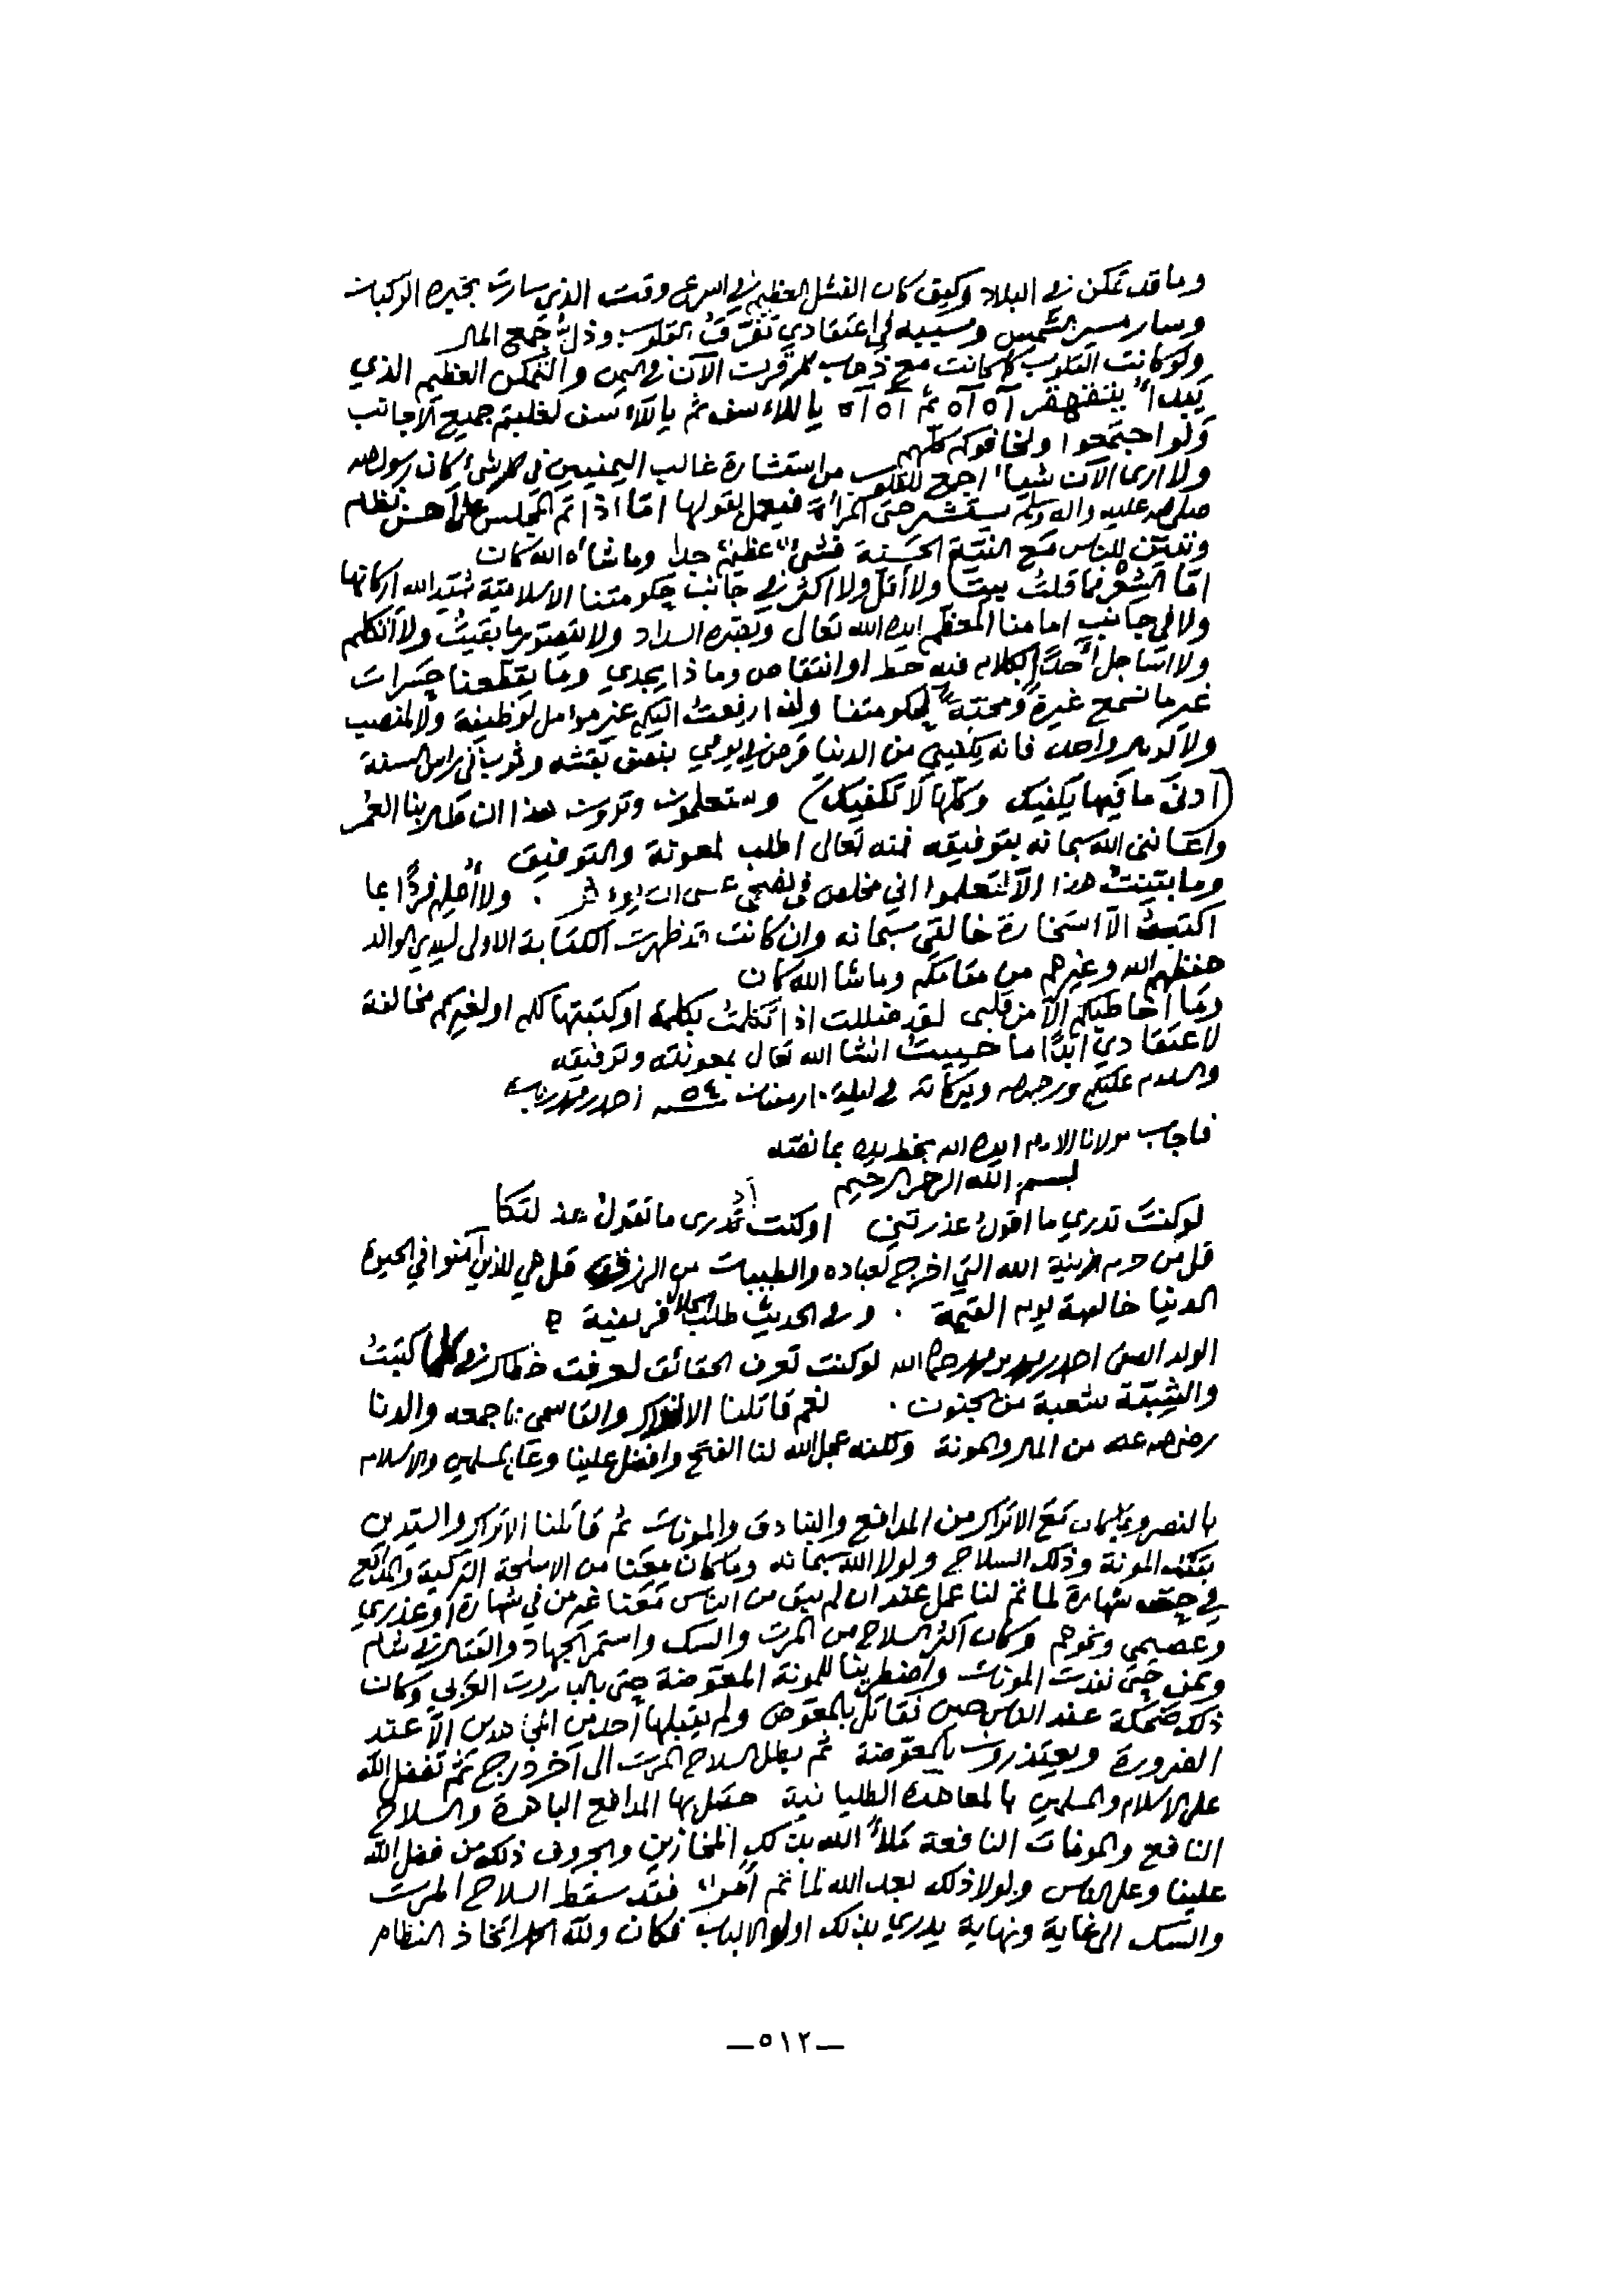 وما قد تمكن في البلاد وكيف كان الفشل العظيم في اسرع وقت الذي سارت بخبره الركبان
وسار مسير الشمس وسببه في اعتقادي تفرق القلوب وذلك جمع المال
ولو كانت القلوب كما كانت مع ذهاب كل قرت الآن في اليمن والتمكن العظيم الذي
يبدأ بتقهقر آه آه ثم آه آه يا للاسف ثم يا للأسف لغلبتم جميع الأجانب
ولو اجتمعوا ولخافوكم كلهم
ولا ارى الآن شيأ اجمع للقلوب من استشارة غالب اليمنيين في كل شيء كان رسول الله
صلى الله عليه واله وسلم يستشير حتى المرأة فيعمل بقولها امّا اذا تم المجلس على أحسن نظام
وتبين للناس مع النية الحسنة فشيءٌ عظيمٌ جدا وما شاء الله كان
امّا الشعر فما قلت بيتاً ولا أقل ولا اكثر في جانب حكومتنا الاسلامية شيد الله اركانها
ولا في جانب امامنا المعظم ايده الله تعالى وبصره السداد ولا يتصور ما بقيت ولا أتكلم
ولا اساجل أحداً بكلام فيه حط او انتقاص وما ذا يجدي وما يقطعنا حسرات
غير ما نسمع غيرةً ومحبّةً لحكومتنا ولقد رفعت اليكم غير مؤمل لوظيفة ولا لمنصب
ولا لدرهم واحد فانه يكفيني من الدنيا قرص في يومي بنصف بقشه وثوب في راس السنة
(ادنى ما فيها يكفيك وكلها لا تكفيك) وستعلمون وترون هذا ان طال بنا العمر
واعانني الله سبحانه بتوفيقه فمنه تعالى اطلب المعونة والتوفيق
وما بينت هذا الّا لتعلموا اني مخلص في نصحي عسى ان يؤثر . ولا أعلم فرداً بما
اكتبت الّا استخارة خالقي سبحانه وان كانت قد ظهرت الكتابة الاولى لسيدي الوالد
حفظهم الله وغيرهم من مقامكم وما شا الله كان
وما اخاطبكم الّا من قلبي لقد ضللت اذا تكلمت بكلمة او كتبتها لكم او لغيركم مخالفة
لاعتقادي ابداً ما حييت انشا الله تعالى بمعونته وتوفيقه
والسلام عليكم ورحمة الله وبركاته في ليلة ١٠ رمضان سنة ٥٤ احمد
فاجاب مولانا الامام ايده الله بخط يده بما لفظه
بسم الله الرحمن الرحيم
لو كنتَ تدري ما اقول عذرتني او كنت أدرى ما تقول عذلتكا
قل من حرم زينة الله التي اخرج لعباده والطيبات من الرزق قل هي للذين آمنوا في الحيوة
الدنيا خالصة يوم القيمة . وفي الحديث طلب الحلال فريضة
الولد الصفي احمد حماه الله لو كنت تعرف الحقائق لعرفت خطاك في كلما كتبت
والشبيبة شعبة من الجنون . نعم قاتلنا الاتراك والقاسمي بما جمعه والدنا
رضي الله عنه من المال والمونة ولكنه عجل الله لنا الفتح وافضل علينا وعلى المسلمين والاسلام
بالنصر وبما كان مع الاتراك من المدافع والبنادق والمونات ثم قاتلنا الاتراك والسيدين
بتلك المونة وذلك السلاح ولولا الله سبحانه وما كان معنا من الاسلحة التركية والمدافع
في حتف شهارة لما تم لنا عمل عند ان لم يبق من الناس معنا غير من في شهارة أو عذري
وعصيمي ونحوهم وكان اكثر السلاح من المرت والسك واستمر الجهاد والقتال في شام
ويمن حتى نفدت المونات واضطرينا للمونة المعوضة حتى بالبارود العربي وكان
ذلك ضحكة عند الناس حين نقاتل بالمعوض ولم يقبلها أحد من المجاهدين الّا عند
الضرورة ويعتذرون بالمعوّضة ثم بطل السلاح المرت الى آخر درجة ثم تفضل الله
على الاسلام والمسلمين بالمعاهدة الطليانية حصل بها المدافع الباهرة والسلاح
النافع والمونات النافعة ملأ الله بذلك المخازين والجروف ذلك من فضل الله
علينا وعلى الناس ولولا ذلك بعد الله لما تم أمرٌ فقد سقط السلاح المرت
والسك الى غاية ونهاية يدري بذلك اولو الالباب فكان ولله الحمد اتخاذ النظام
—٥١٢—